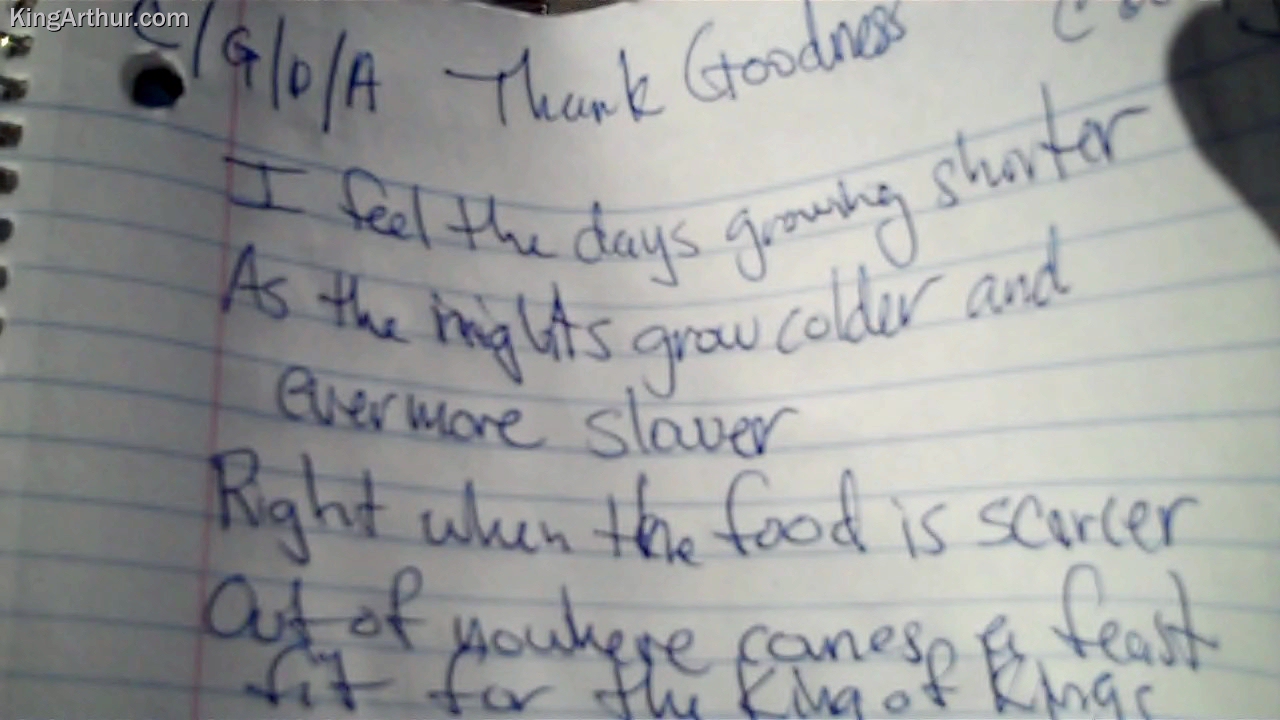 KingArthur.com
C/G/D/A Thank Goodness
I feel the days growing shorter
As the nights grow colder and
evermore slower
Right when the food is scarcer
Out of nowhere comes a feast
fit for the King of Kings